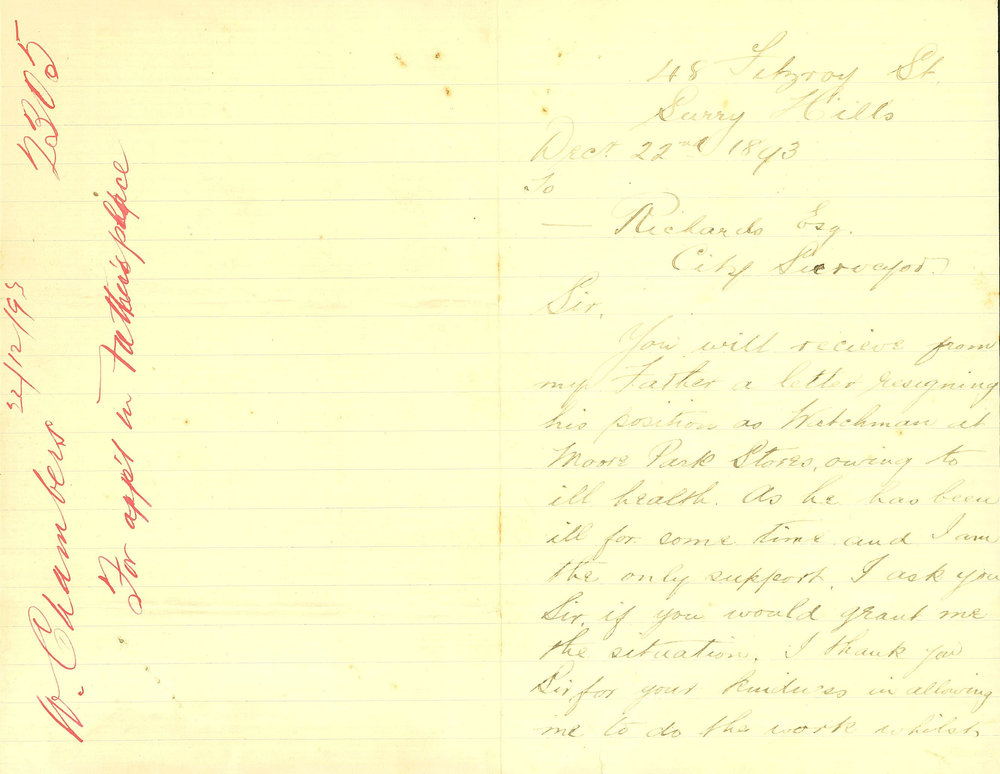 W. Chambers 22/12/93 2305
For app't in Father's place
48 Fitzroy St.
Surry Hills
Decr. 22nd 1893
To
— Richards Esq.
City Surveyor.
Sir,
You will recieve from
my Father a letter resigning
his position as Watchman at
Moore Park Stores, owing to
ill health. As he has been
ill for some time and I am
the only support, I ask you
Sir, if you would grant me
the situation. I thank you
Sir for your kindness in allowing
me to do the work whilst